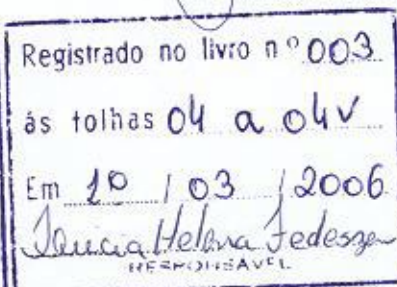 Registrado no livro nº 003
ás folhas 04 a 04v
Em 1º / 03 / 2006
Helena
RESPONSÁVEL